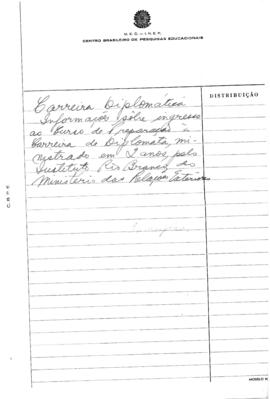 M.E.C. - I.N.E.P.
CENTRO BRASILEIRO DE PESQUISAS EDUCACIONAIS
DISTRIBUIÇÃO
Carreira Diplomática
Informações sôbre ingresso
ao Curso de Preparação à
Carreira de Diplomata, mi-
nistrado em 2 anos, pelo
Instituto Rio Branco do
Ministério das Relações Exteriores
C.B.P.E.
MODELO